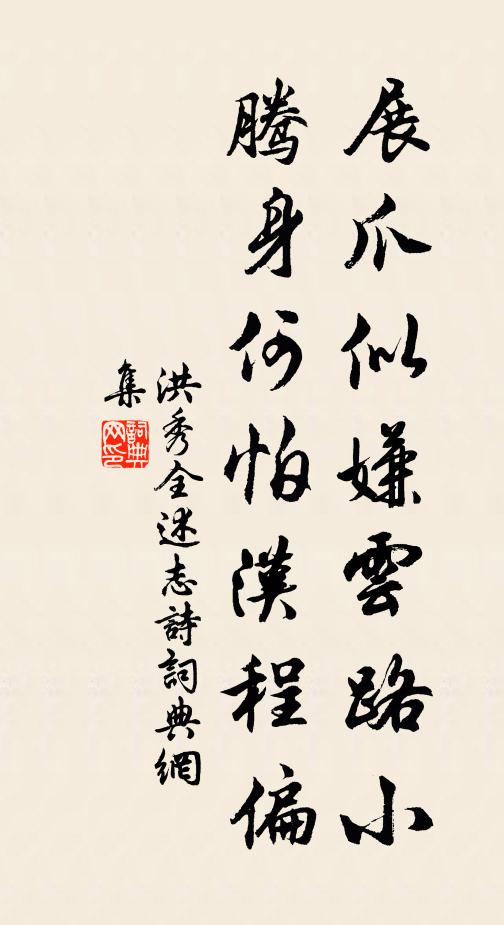 展爪似嫌雲路小
騰身何怕漢程偏
洪秀全述志詩詞典網
集
詞典
网印